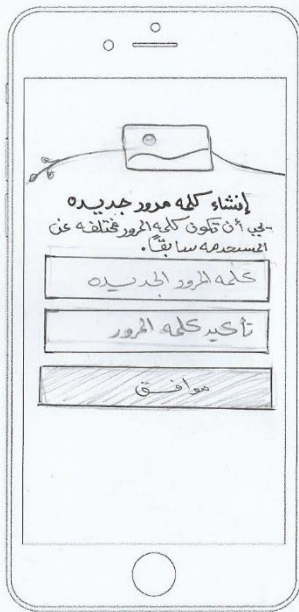 إنشاء كلمه مرور جديده
يجب أن تكون كلمه المرور مختلفه عن
المستخدمه سابقاً.
كلمه المرور الجديده
تأكيد كلمه المرور
موافق